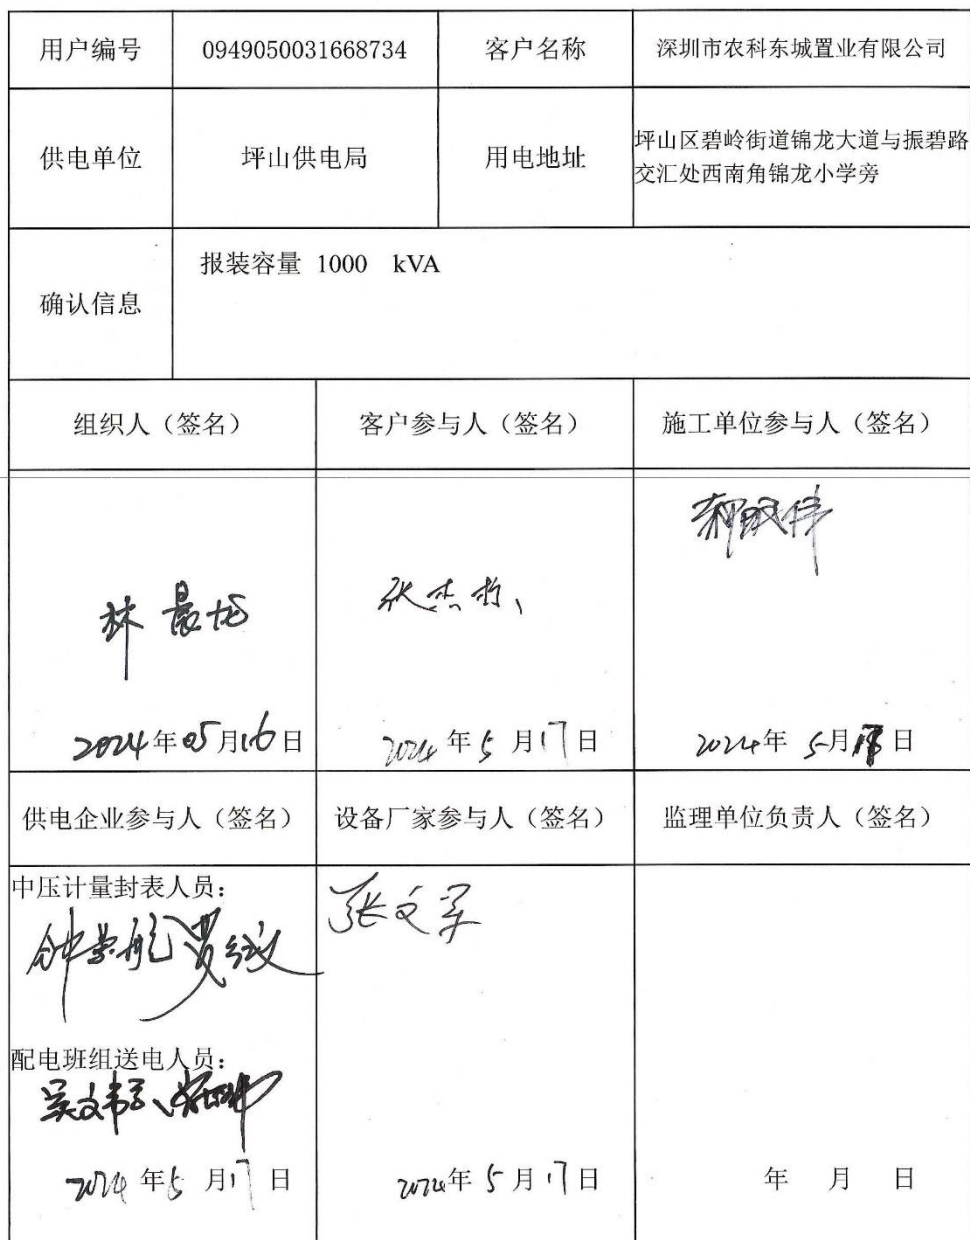 用户编号 0949050031668734 客户名称 深圳市农科东城置业有限公司
供电单位 坪山供电局 用电地址 坪山区碧岭街道锦龙大道与振碧路
交汇处西南角锦龙小学旁
确认信息 报装容量 1000 kVA
组织人（签名） 客户参与人（签名） 施工单位参与人（签名）
林晨龙 张杰哲
2024年05月16日 2024年5月17日 2024年5月 日
供电企业参与人（签名） 设备厂家参与人（签名） 监理单位负责人（签名）
中压计量封表人员：
张文军
配电班组送电人员：
2024年5月17日 2024年5月17日 年 月 日